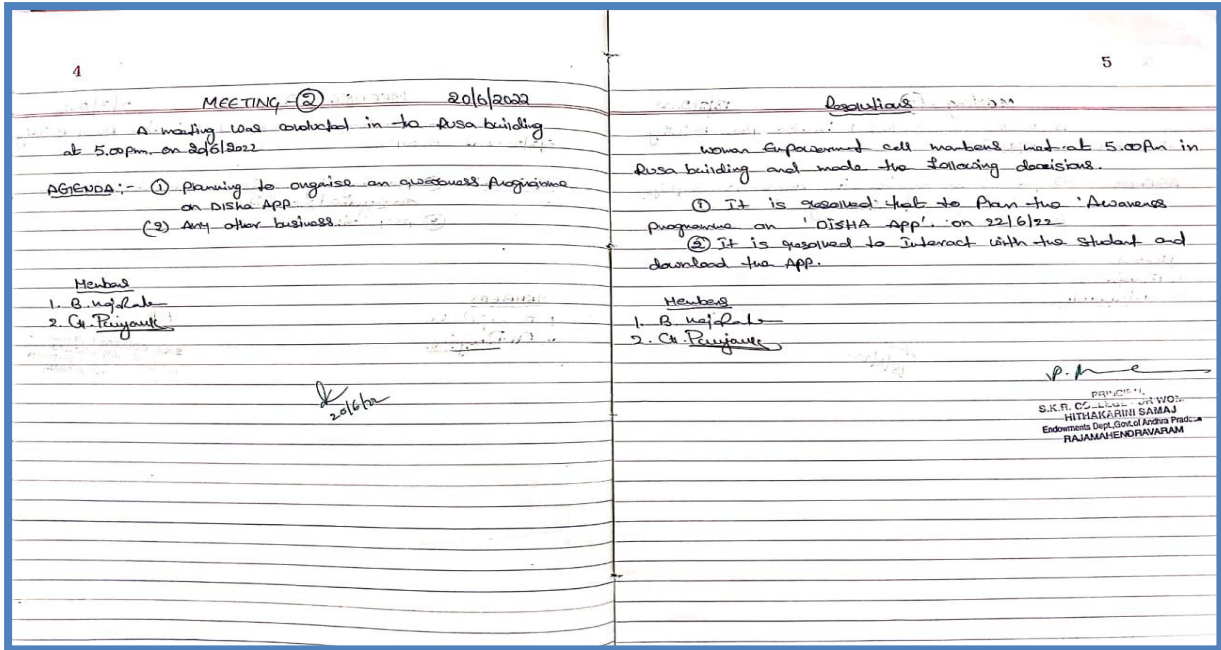 4
MEETING-② 20/6/2022
A meeting was conducted in to Rusa building
at 5.00pm. on 20/6/2022
AGENDA:- ① planning to organise an awareness programme
on DISHA APP
(2) Any other business.
Members
1. B.
2. Ch. Priyanka
20/6/22
5
Resolutions
women Empowerment cell members met at 5.00pm in
Rusa building and made the following decisions.
① It is resolved that to Plan the 'Awareness
programme on 'DISHA APP'. on 22/6/22
② It is resolved to Interact with the student and
download the APP.
Members
1. B.
2. Ch. Priyanka
PRINCIPAL
S.K.R. COLLEGE FOR WOMEN
HITHAKARINI SAMAJ
Endowments Dept.,Govt.of Andhra Pradesh
RAJAMAHENDRAVARAM